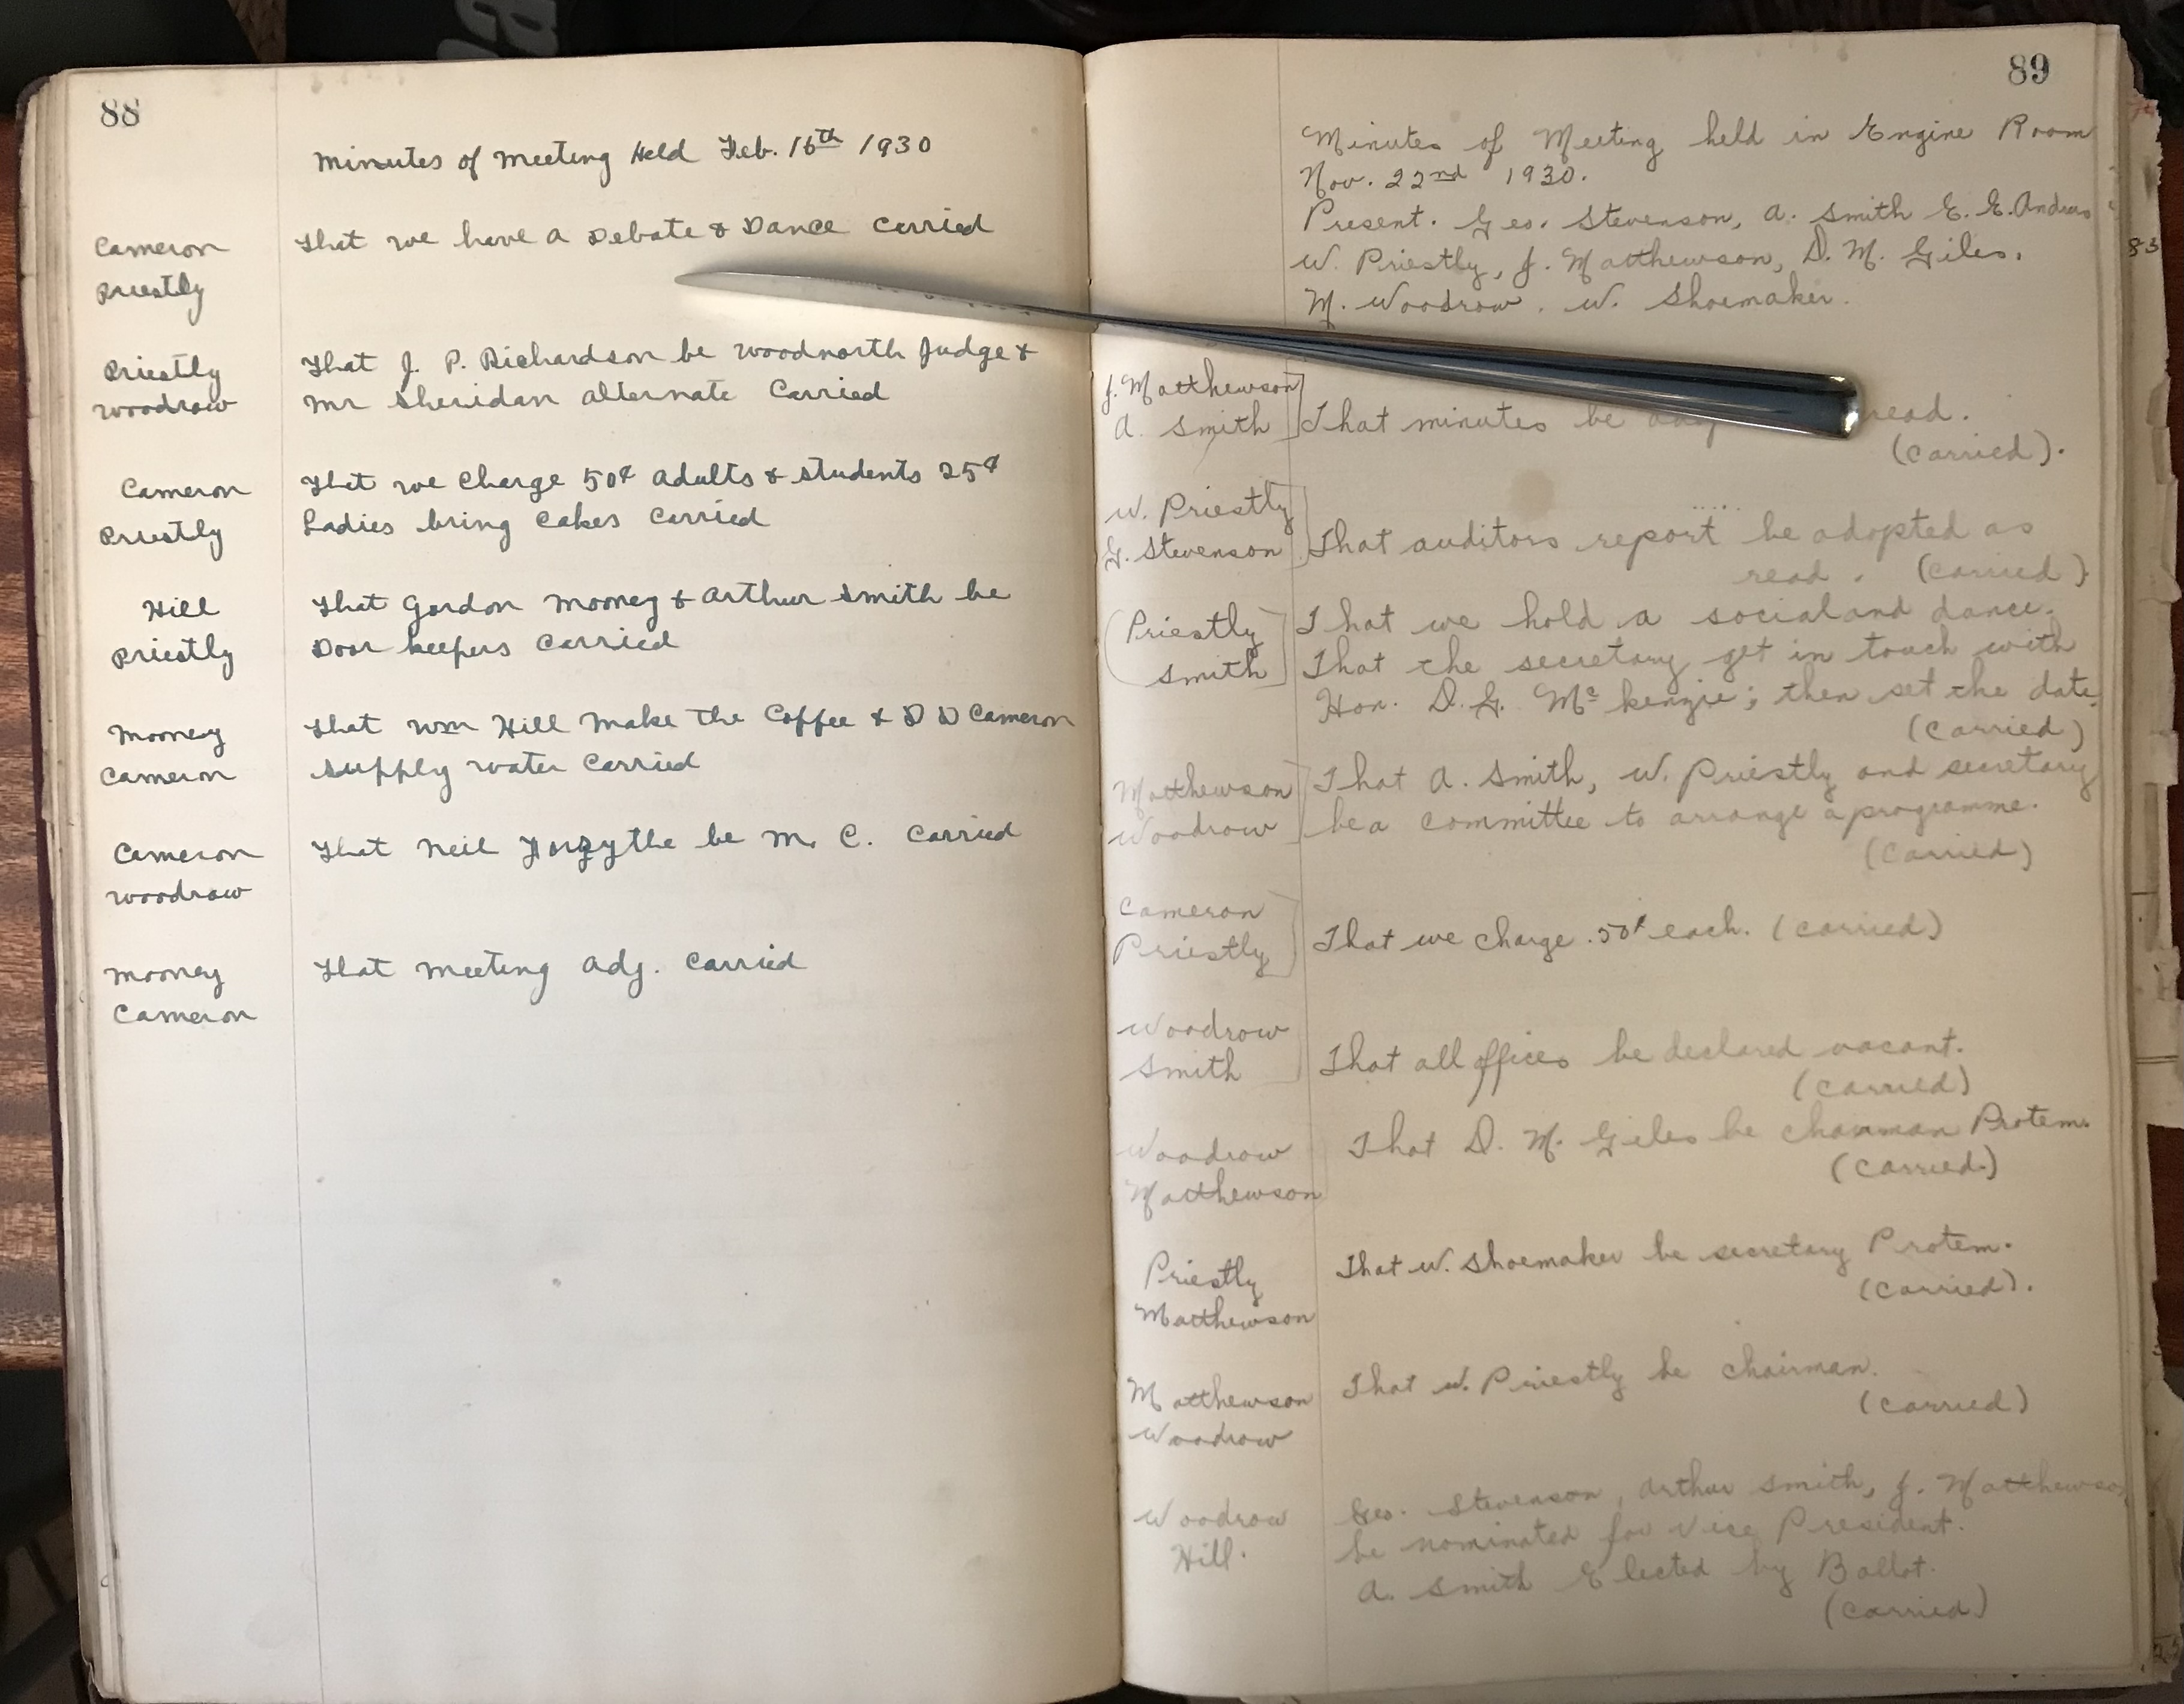 88
Minutes of Meeting Held Feb. 16th 1930
Cameron
Priestly
That we have a Debate & Dance Carried
Priestly
Woodrow
That J. P. Richardson be Woodnorth Judge &
Mr Sheridan alternate Carried
Cameron
Priestly
That we Charge 50¢ Adults & Students 25¢
Ladies bring Cakes Carried
Hill
Priestly
That Gordon Mooney & Arthur Smith be
Door keepers Carried
Mooney
Cameron
That Wm Hill Make the Coffee & D D Cameron
Supply water Carried
Cameron
Woodrow
That Neil Forsythe be M. C. Carried
Mooney
Cameron
That Meeting Adj. Carried
89
Minutes of Meeting held in Engine Room
Nov. 22nd 1930.
Present. Geo. Stevenson, A. Smith E. E. Andrus
W. Priestly, J. Matthewson, D. M. Giles.
M. Woodrow. W. Shoemaker.
J. Matthewson
A. Smith
That minutes be read.
(Carried).
W. Priestly
G. Stevenson
That auditors report be adopted as
read. (Carried)
Priestly
Smith
That we hold a social and dance.
That the secretary get in touch with
Hon. D. G. Mc kenzie; then set the date.
(Carried)
Matthewson
Woodrow
That A. Smith, W. Priestly and secretary
be a committee to arrange a programme.
(Carried)
Cameron
Priestly
That we charge .50¢ each. (Carried)
Woodrow
Smith
That all offices be declared vacant.
(Carried)
Woodrow
Matthewson
That D. M. Giles be chairman Protem.
(Carried.)
Priestly
Matthewson
That W. Shoemaker be secretary Protem.
(Carried).
Matthewson
Woodrow
That W. Priestly be chairman.
(Carried)
Woodrow
Hill.
Geo. Stevenson, Arthur Smith, J. Matthewson
be nominated for Vice President.
A. Smith Elected by Ballot.
(Carried)
83